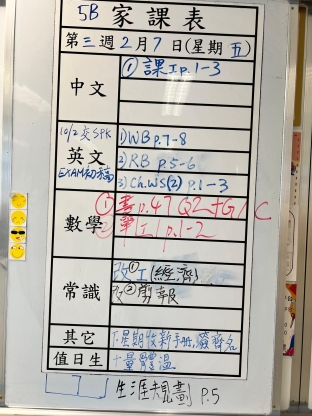 5B 家課表
第三週2月7日(星期五)
中文
① 課工p.1-3
10/2 交 SPK
EXAM初稿
英文
1) WB p.7-8
2) RB p.5-6
3) Ch.WS(2) p.1-3
數學
① 書p.47 Q2 fG/C
② 單工 p.1-2
常識
改① 工(經濟)
② 剪報
其它
下星期收新手冊,齊名
值日生
+量體溫
生涯規劃 P.5